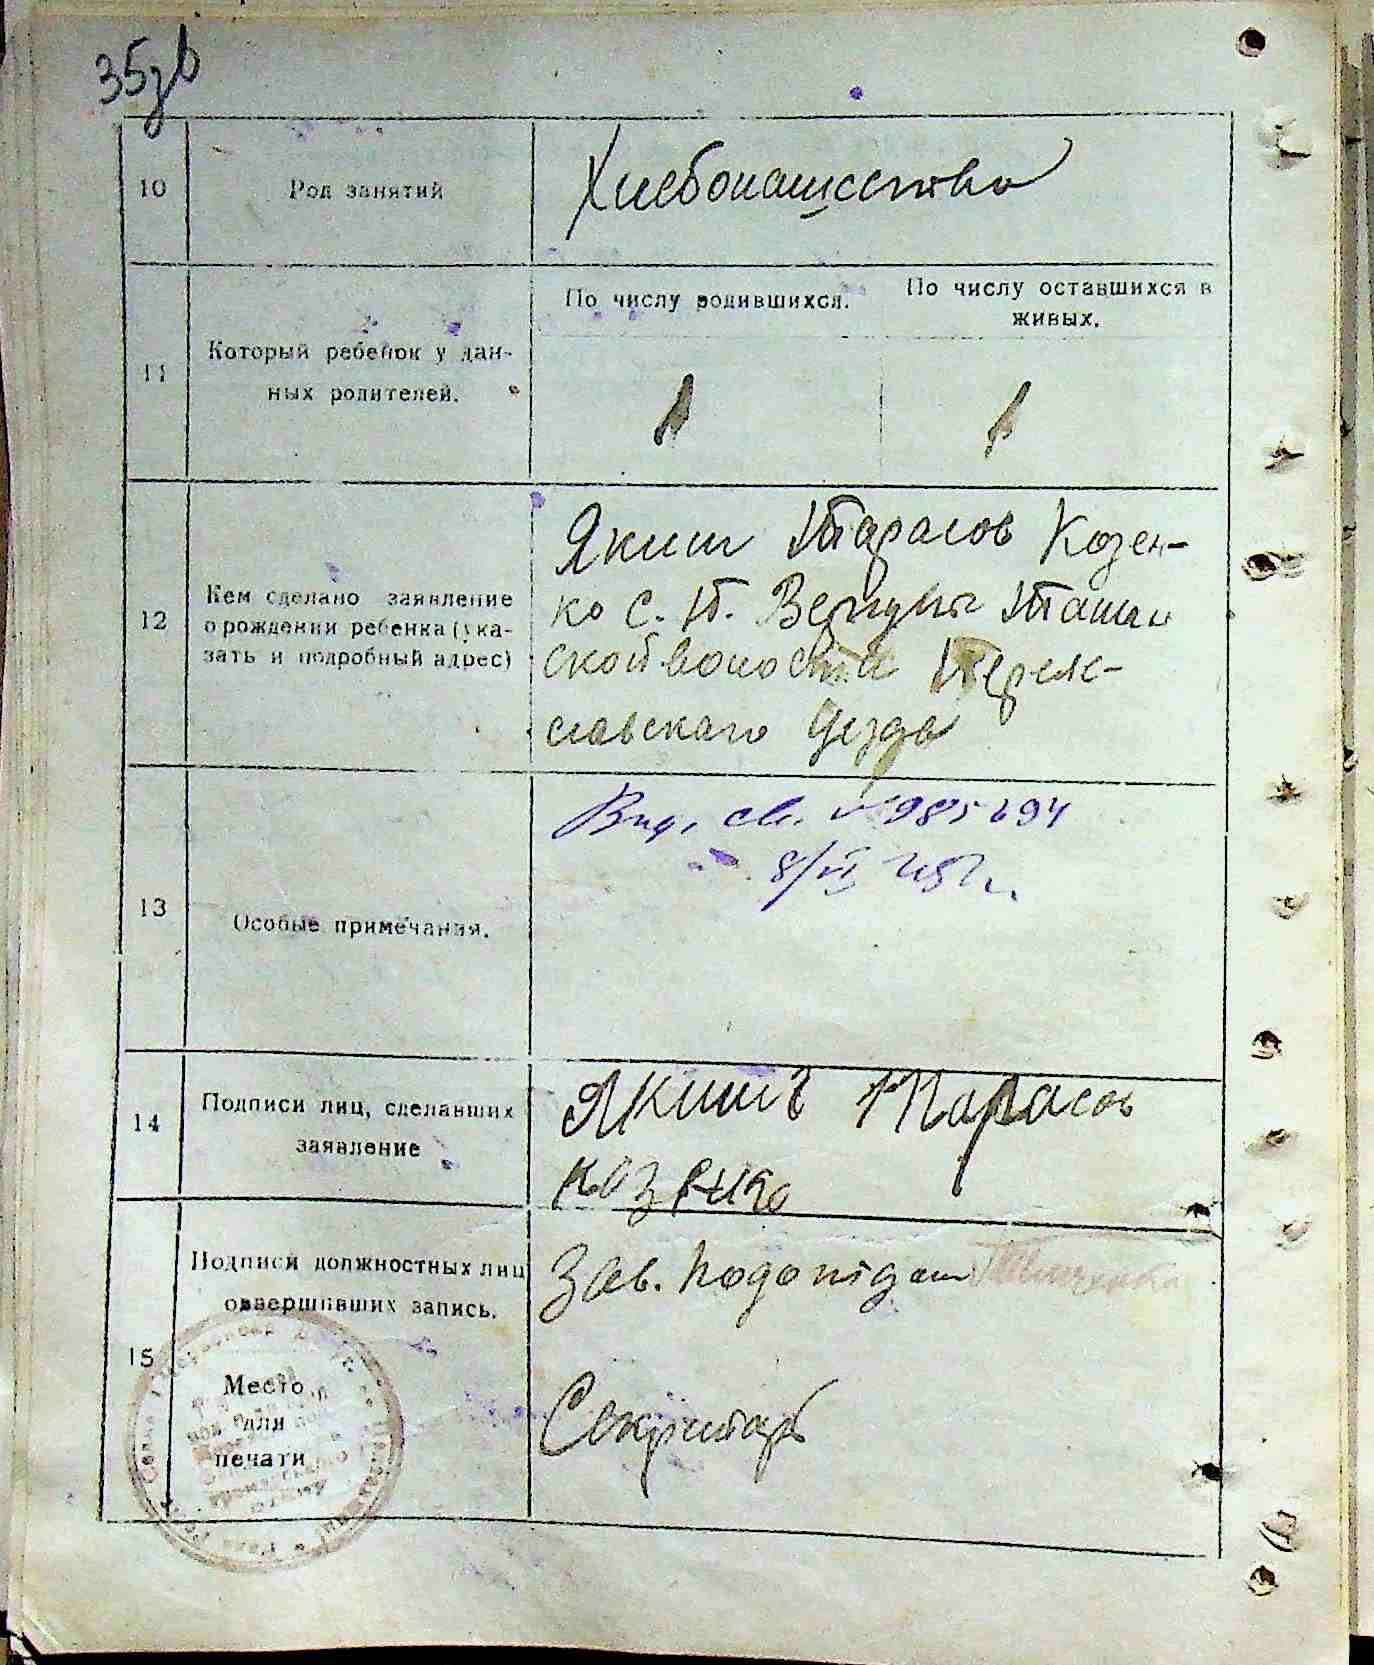 35зв
10
Род занятий
Хлебопашество
11
Который ребенок у дан-
ных родителей.
По числу родившихся.
По числу оставшихся в
живых.
1
1
12
Кем сделано заявление
о рождении ребенка (ука-
зать и подробный адрес)
Яким Тарасов Козен-
ко с. П. Вергуны Ташан
ской волости Переяс-
славскаго Уезда
13
Особые примечания.
Выд. св. № 985694
8/VI
14
Подписи лиц, сделавших
заявление
Якимъ Тарасов
козенко
15
Подписи должностных лиц
совершивших запись.
Зав. Подотдел
Секритарь
Место
для
печати